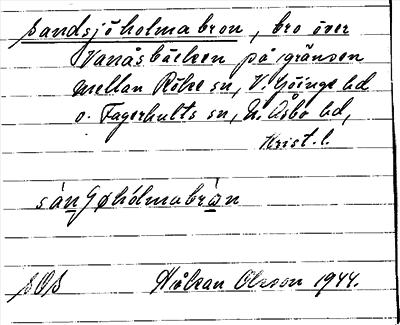 Sandsjöholmabron, bro över
Vanåsbäcken på gränsen
mellan Röke sn, V. Göinge hd
o. Fagerhults sn, N. Åsbo hd,
Krist. l.
sán Gøhólmabròn
SOS Håkan Olsson 1944.